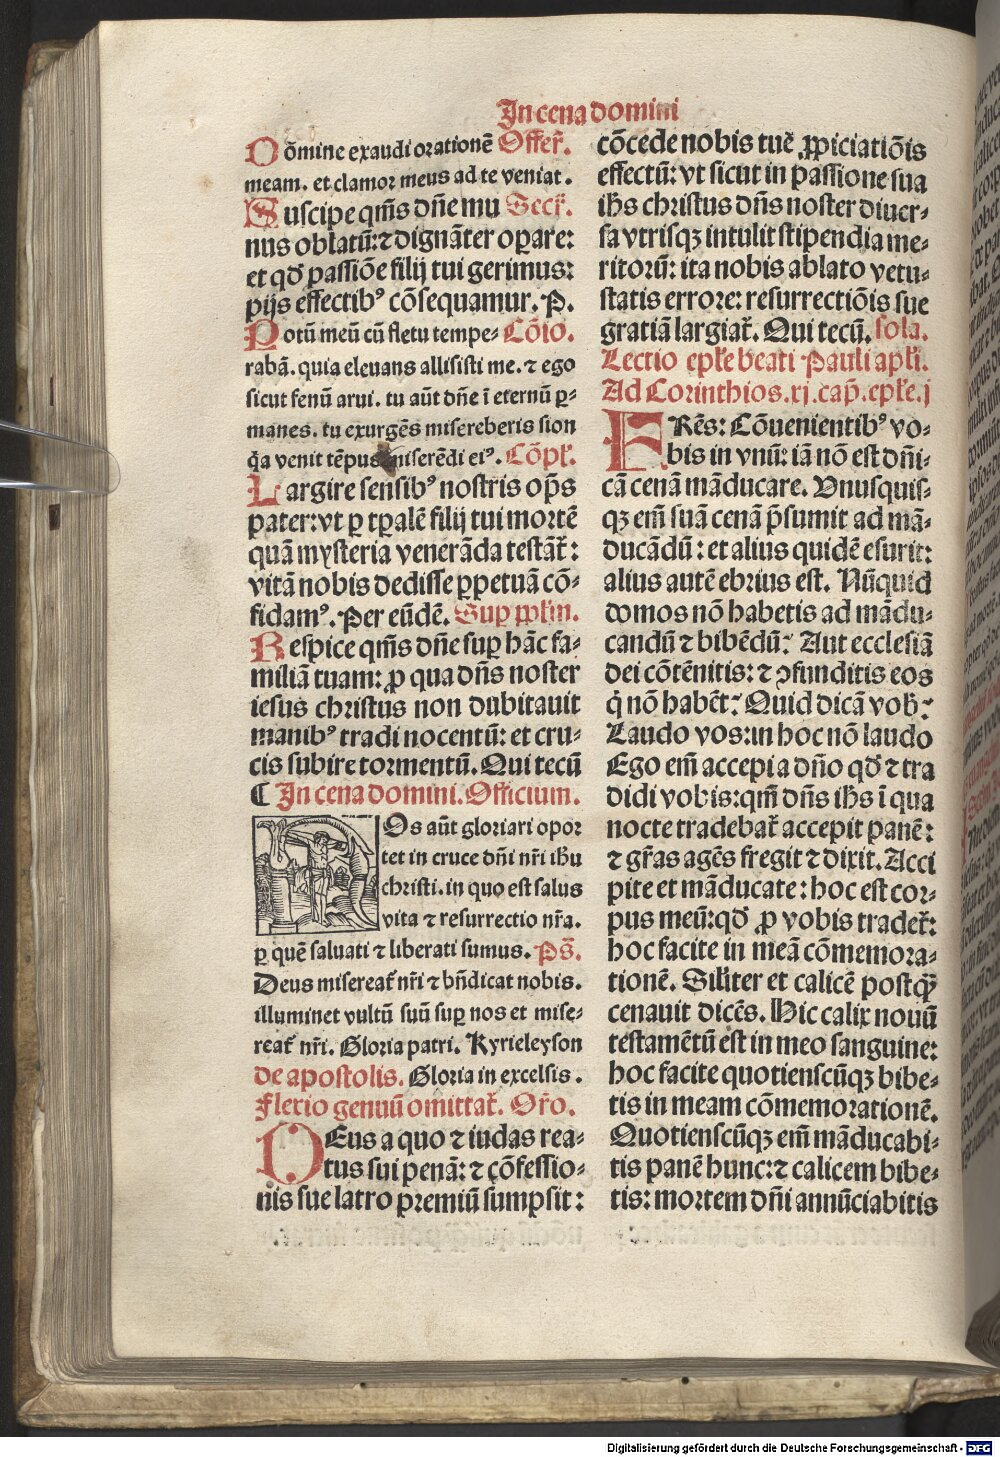 In cena domini
Dōmine exaudi orationē Offer̄.
meam. et clamor meus ad te veniat.
Suscipe qm̄s dn̄e mu Secr̄.
nus oblatū: ⁊ dignāter oꝑare:
et qd̄ passiōe filij tui gerimus:
pijs effectibꝰ cōsequamur. P.
Potū meū cū fletu tempe- Cōio.
rabā. quia eleuans allisisti me. ⁊ ego
sicut fenū arui. tu aūt dn̄e ī eternū ꝑ-
manes. tu exurgēs misereberis sion
q̄a venit tēpus miserēdi eiꝰ. Cōpl̄.
Largire sensibꝰ nostris op̄s
pater: vt ꝑ tꝑalē filij tui mortē
quā mysteria venerāda testāt̄:
vitā nobis dedisse ꝑpetuā cō-
fidamꝰ. Per eūdē. Suꝑ pp̄lm̄.
Respice qm̄s dn̄e suꝑ hāc fa-
miliā tuam: ꝓ qua dn̄s noster
iesus christus non dubitauit
manibꝰ tradi nocentū: et cru-
cis subire tormentū. Qui tecū
¶ In cena domini. Officium.
Nos aūt gloriari opor
tet in cruce dn̄i nr̄i ihu
christi. in quo est salus
vita ⁊ resurrectio nr̄a.
ꝑ quē saluati ⁊ liberati sumus. Ps̄.
Deus misereat̄ nr̄i ⁊ bn̄dicat nobis.
illuminet vultū suū suꝑ nos et mise-
reat̄ nr̄i. Gloria patri. Kyrieleyson
de apostolis. Gloria in excelsis.
Flexio genuū omittat̄. Or̄o.
DEus a quo ⁊ iudas rea-
tus sui penā: ⁊ cōfessio-
nis sue latro premiū sumpsit:
cōcede nobis tuē ꝓpiciatiōis
effectū: vt sicut in passione sua
ihs christus dn̄s noster diuer-
sa vtrisqꝫ intulit stipendia me-
ritorū: ita nobis ablato vetu-
statis errore: resurrectiōis sue
gratiā largiat̄. Qui tecū. sola.
Lectio epl̄e beati Pauli apl̄i.
Ad Corinthios. xj. cap̄. epl̄e. j
FRēs: Cōuenientibꝰ vo-
bis in vnū: iā nō est dn̄i-
cā cenā māducare. Vnusquis-
qꝫ em̄ suā cenā p̄sumit ad mā-
ducādū: et alius quidē esurit:
alius autē ebrius est. Nūquid
domos nō habetis ad mādu-
candū ⁊ bibēdū? Aut ecclesiā
dei cōtēnitis: ⁊ ꝯfunditis eos
q̄ nō habēt? Quid dicā vob̄?
Laudo vos: in hoc nō laudo
Ego em̄ accepi a dn̄o qd̄ ⁊ tra
didi vobis: qm̄ dn̄s ihs ī qua
nocte tradebat̄ accepit panē:
⁊ gr̄as agēs fregit ⁊ dixit. Acci
pite et māducate: hoc est cor-
pus meū: qd̄ ꝓ vobis tradet̄:
hoc facite in meā cōmemora-
tionē. Sil̄iter et calicē postqꝫ̄
cenauit dicēs. Hic calix nouū
testamētū est in meo sanguine:
hoc facite quotienscūqꝫ bibe-
tis in meam cōmemorationē.
Quotienscūqꝫ em̄ māducabi-
tis panē hunc: ⁊ calicem bibe-
tis: mortem dn̄i annūciabitis
Digitalisierung gefördert durch die Deutsche Forschungsgemeinschaft - DFG